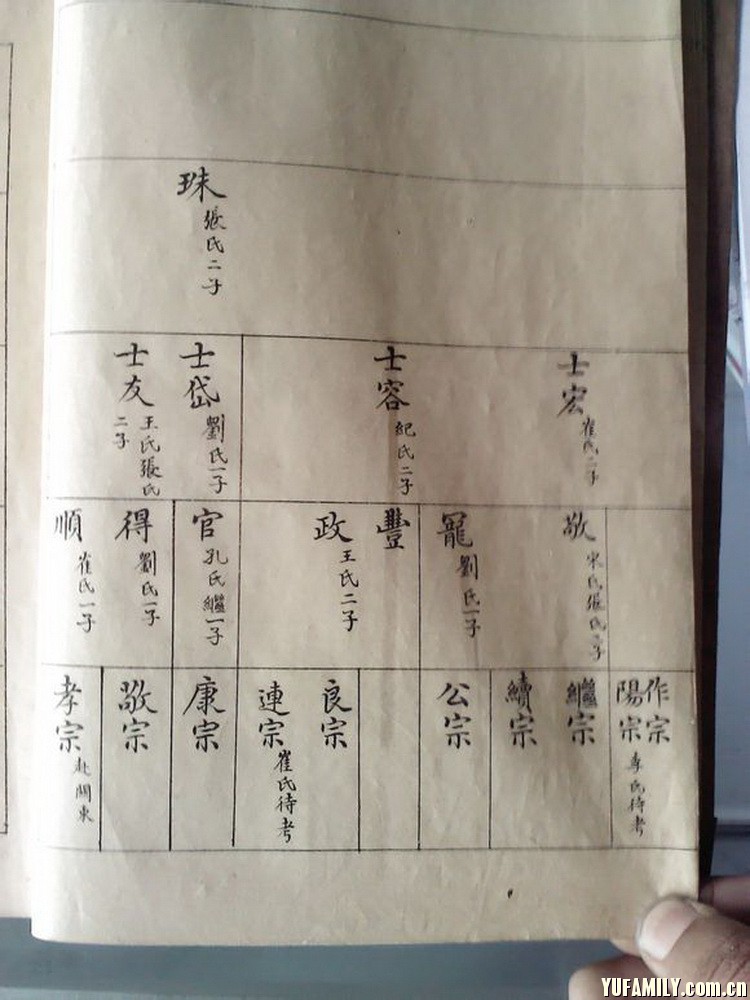 珠
張氏二子
士宏
崔氏二子
士容
紀氏二子
士岱
劉氏一子
士友
王氏張氏
二子
敬
宋氏張氏二子
寵
劉氏一子
豐
政
王氏二子
官
孔氏繼一子
得
劉氏一子
順
崔氏一子
作宗
陽宗
李氏待考
繼宗
續宗
公宗
良宗
連宗
崔氏待考
康宗
敬宗
孝宗
赴關東
YUFAMILY.com.cn